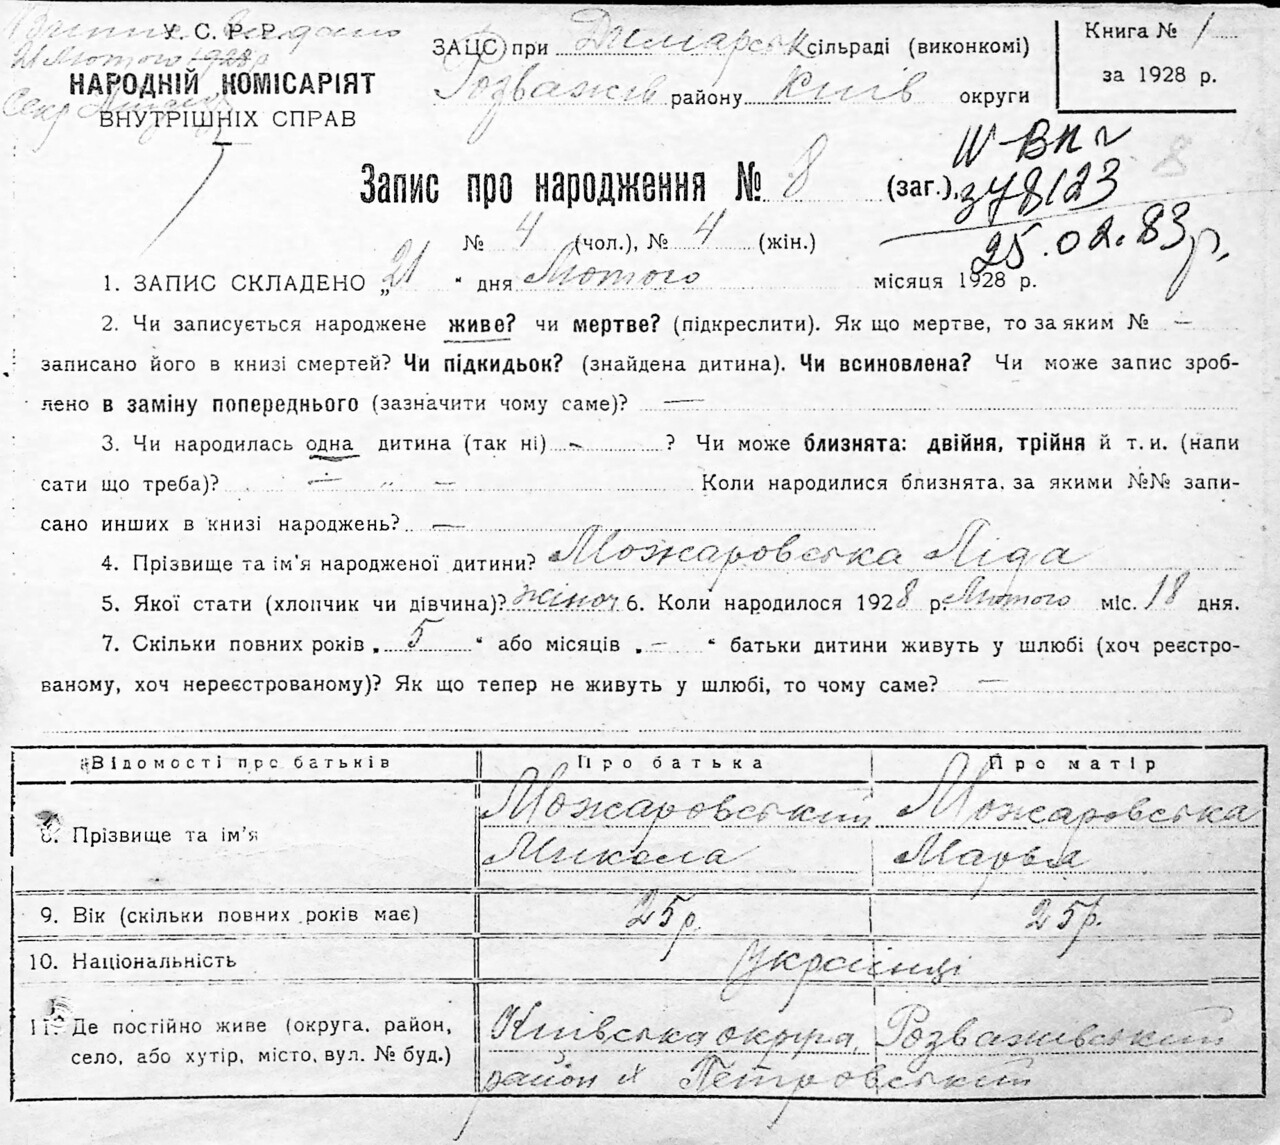 У. С. Р. Р.
21 Лютого 1928 р
НАРОДНІЙ КОМІСАРІЯТ
ВНУТРІШНІХ СПРАВ
ЗАЦС при сільраді (виконкомі)
Розважів району Київ округи
Книга № 1
за 1928 р.
Запис про народження № 8 (заг.),
378123
25.02.83 р.
8
№ 4 (чол.), № 4 (жін.)
1. ЗАПИС СКЛАДЕНО „21 “ дня Лютого місяця 1928 р.
2. Чи записується народжене живе? чи мертве? (підкреслити). Як що мертве, то за яким № —
записано його в книзі смертей? Чи підкидьок? (знайдена дитина). Чи всиновлена? Чи може запис зроб-
лено в заміну попереднього (зазначити чому саме)? —
3. Чи народилась одна дитина (так ні) - ? Чи може близнята: двійня, трійня й т. и. (напи
сати що треба)? — „ — Коли народилися близнята, за якими №№ запи-
сано инших в книзі народжень? —
4. Прізвище та ім'я народженої дитини? Можаровська Ліда
5. Якої стати (хлопчик чи дівчина)? жіноч 6. Коли народилося 1928 р. Лютого міс. 18 дня.
7. Скільки повних років „ 5 “ або місяців „ — “ батьки дитини живуть у шлюбі (хоч реєстро-
ваному, хоч нереєстрованому)? Як що тепер не живуть у шлюбі, то чому саме? —
Відомості про батьків Про батька Про матір
8. Прізвище та ім'я Можаровський Можаровська
Микола Марья
9. Вік (скільки повних років має) 25 р. 25 р.
10. Національність Українці
11. Де постійно живе (округа, район, Київська округа, Розважівський
село, або хутір, місто, вул. № буд.) район х Петровський